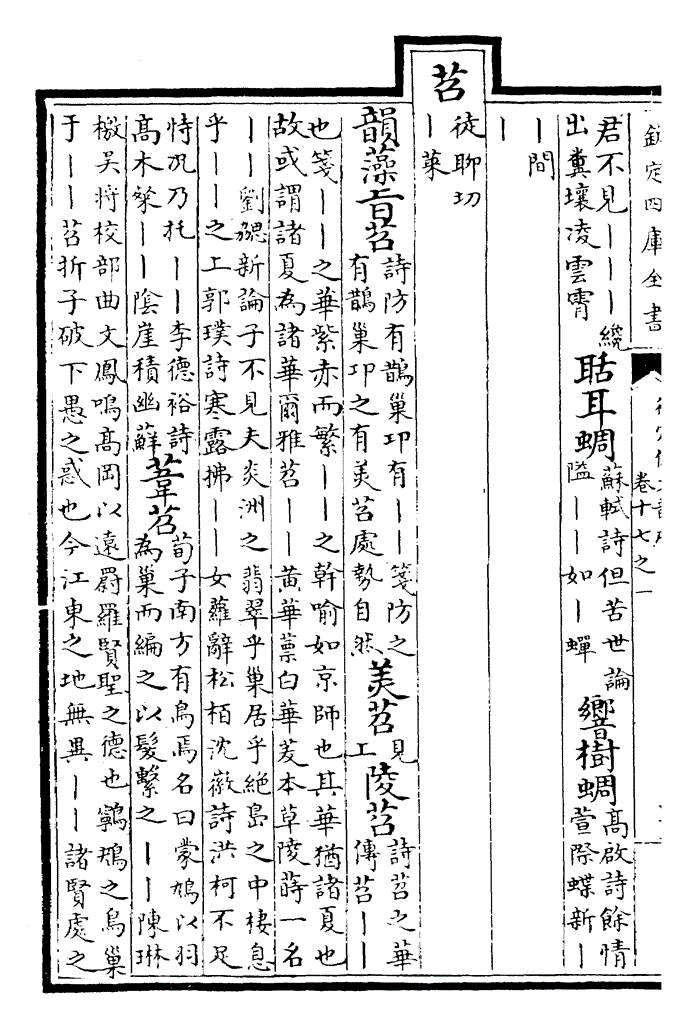 欽定四庫全書
卷十七之一
君不見丨丨丨纔
出糞壤凌雲霄
聒耳蜩
蘇軾詩但苦世論
隘丨丨如丨蟬
響樹蜩
高啟詩餘情
萱際蝶新丨
丨間
丨
苕
徒聊切
丨菜
韻藻旨苕
詩防有鵲巢卭有丨丨箋防之
有鵲巢卭之有美苕處勢自然
美苕
見
上
陵苕
詩苕之華
傳苕丨丨
也箋丨丨之華紫赤而繁丨丨之幹喻如京師也其華猶諸夏也
故或謂諸夏為諸華爾雅苕丨丨黃華蔈白華茇本草陵蒔一名
丨丨劉勰新論子不見夫炎洲之翡翠乎巢居乎絶島之中棲息
乎丨丨之上郭璞詩寒露拂丨丨女蘿辭松栢沈徽詩洪柯不足
恃況乃托丨丨李德裕詩
高木粲丨丨陰崖積幽蘚
葦苕
荀子南方有鳥焉名曰蒙鳩以羽
為巢而編之以髮繫之丨丨陳琳
檄吳將校部曲文鳳鳴高岡以遠罻羅賢聖之德也鸋鴂之鳥巢
于丨丨苕折子破下愚之惑也今江東之地無異丨丨諸賢處之